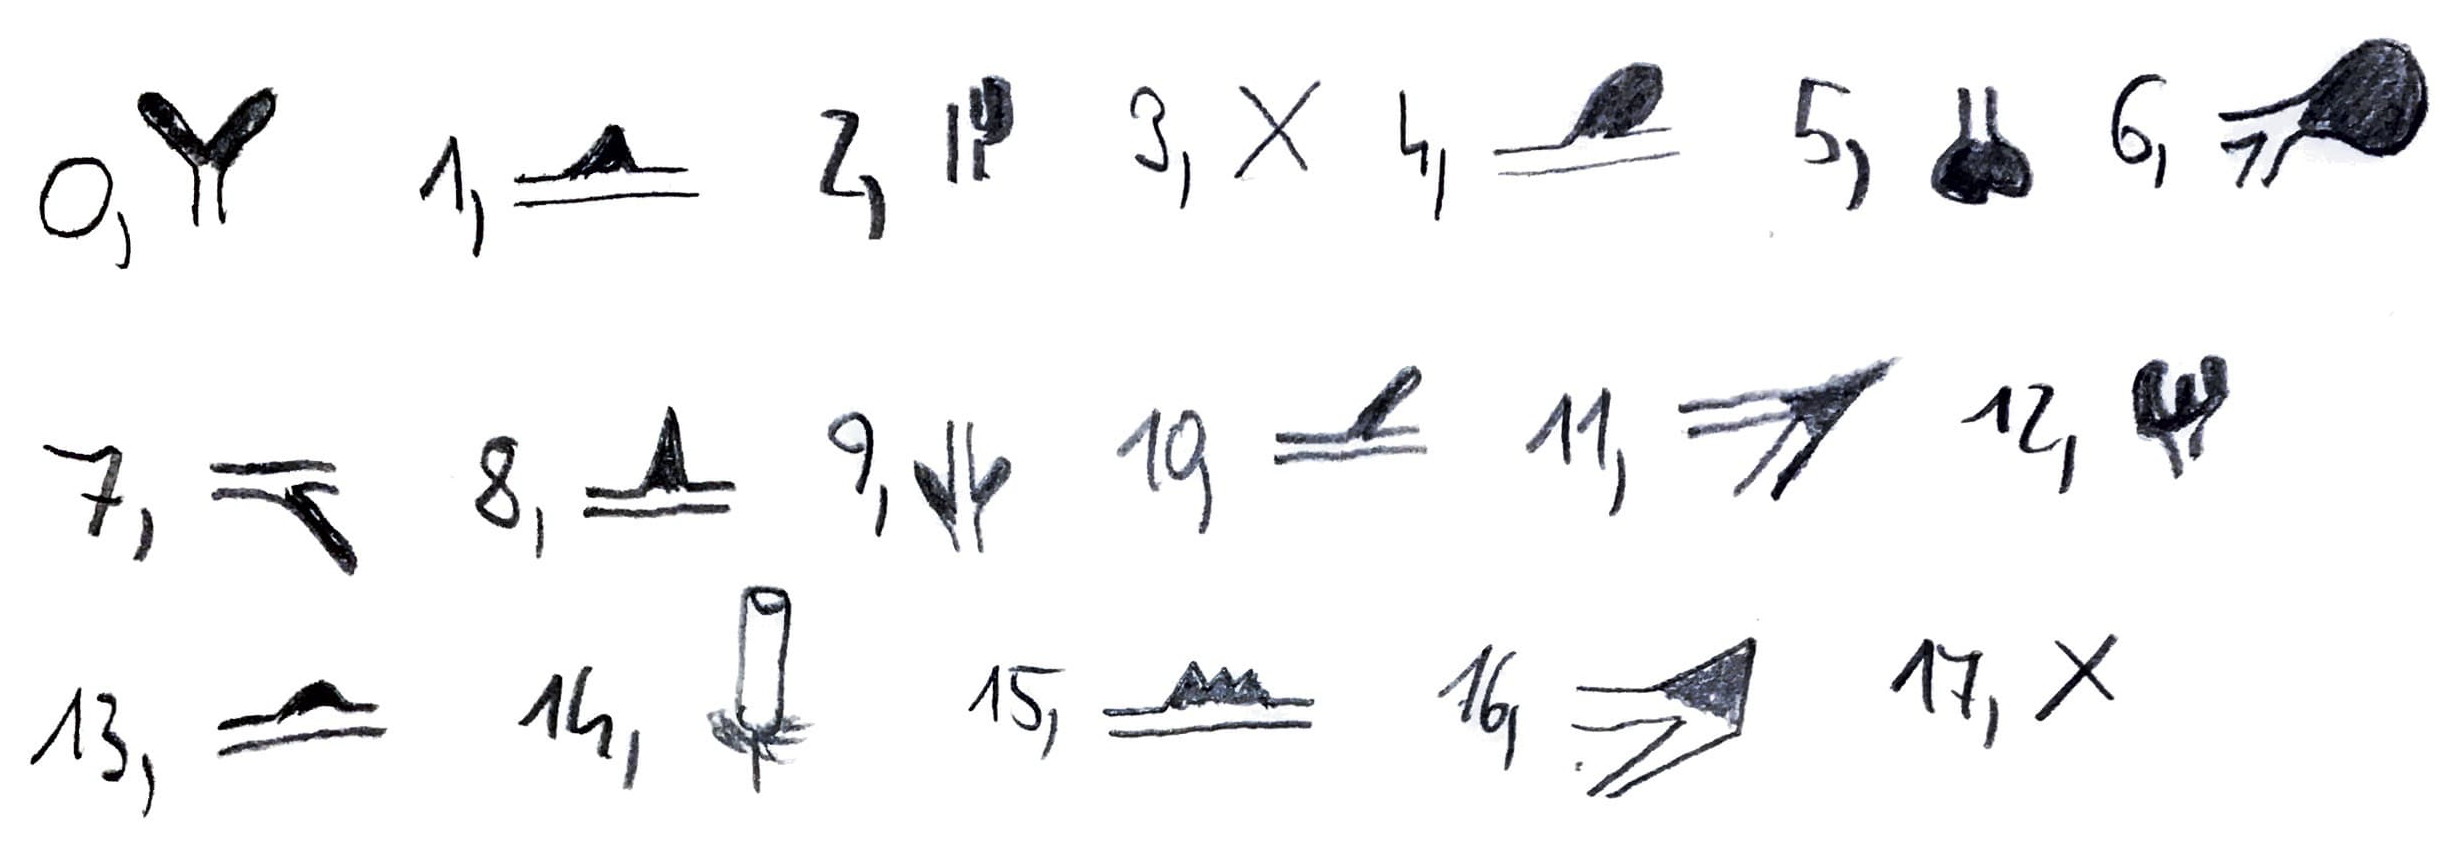 0, 1, 2, 3, X 4, 5, 6,
7, 8, 9, 10, 11, 12,
13, 14, 15, 16, 17, X